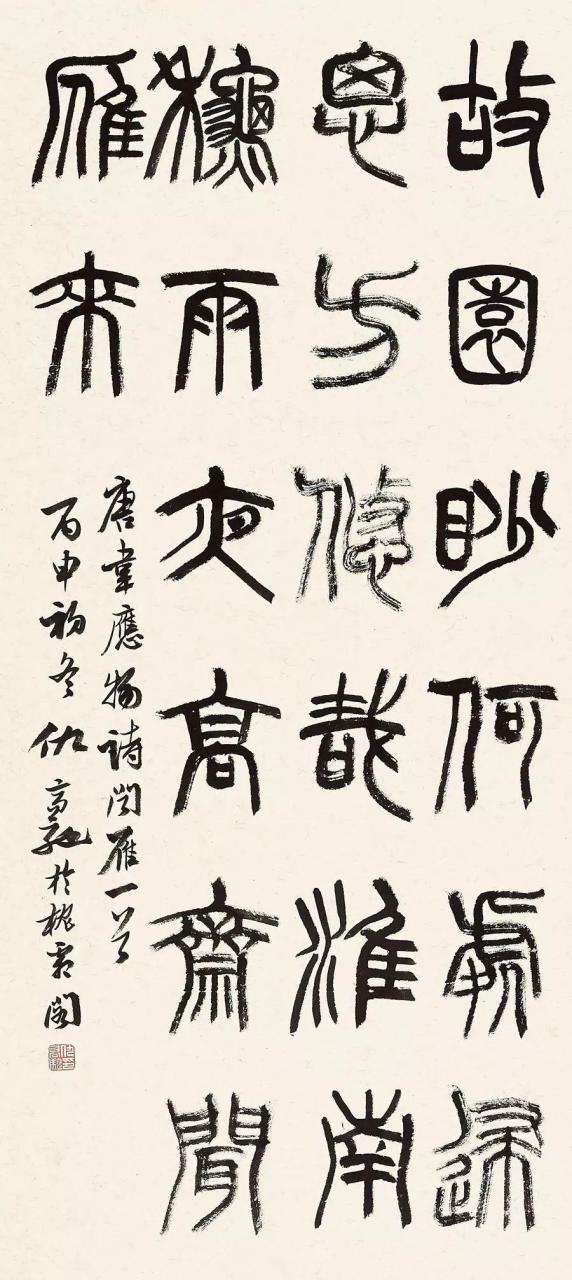 故園眇何處歸
思方悠哉淮南
龝雨夜高齋聞
雁來
唐韋應物詩聞雁一首
丙申初冬仇高馳於閣